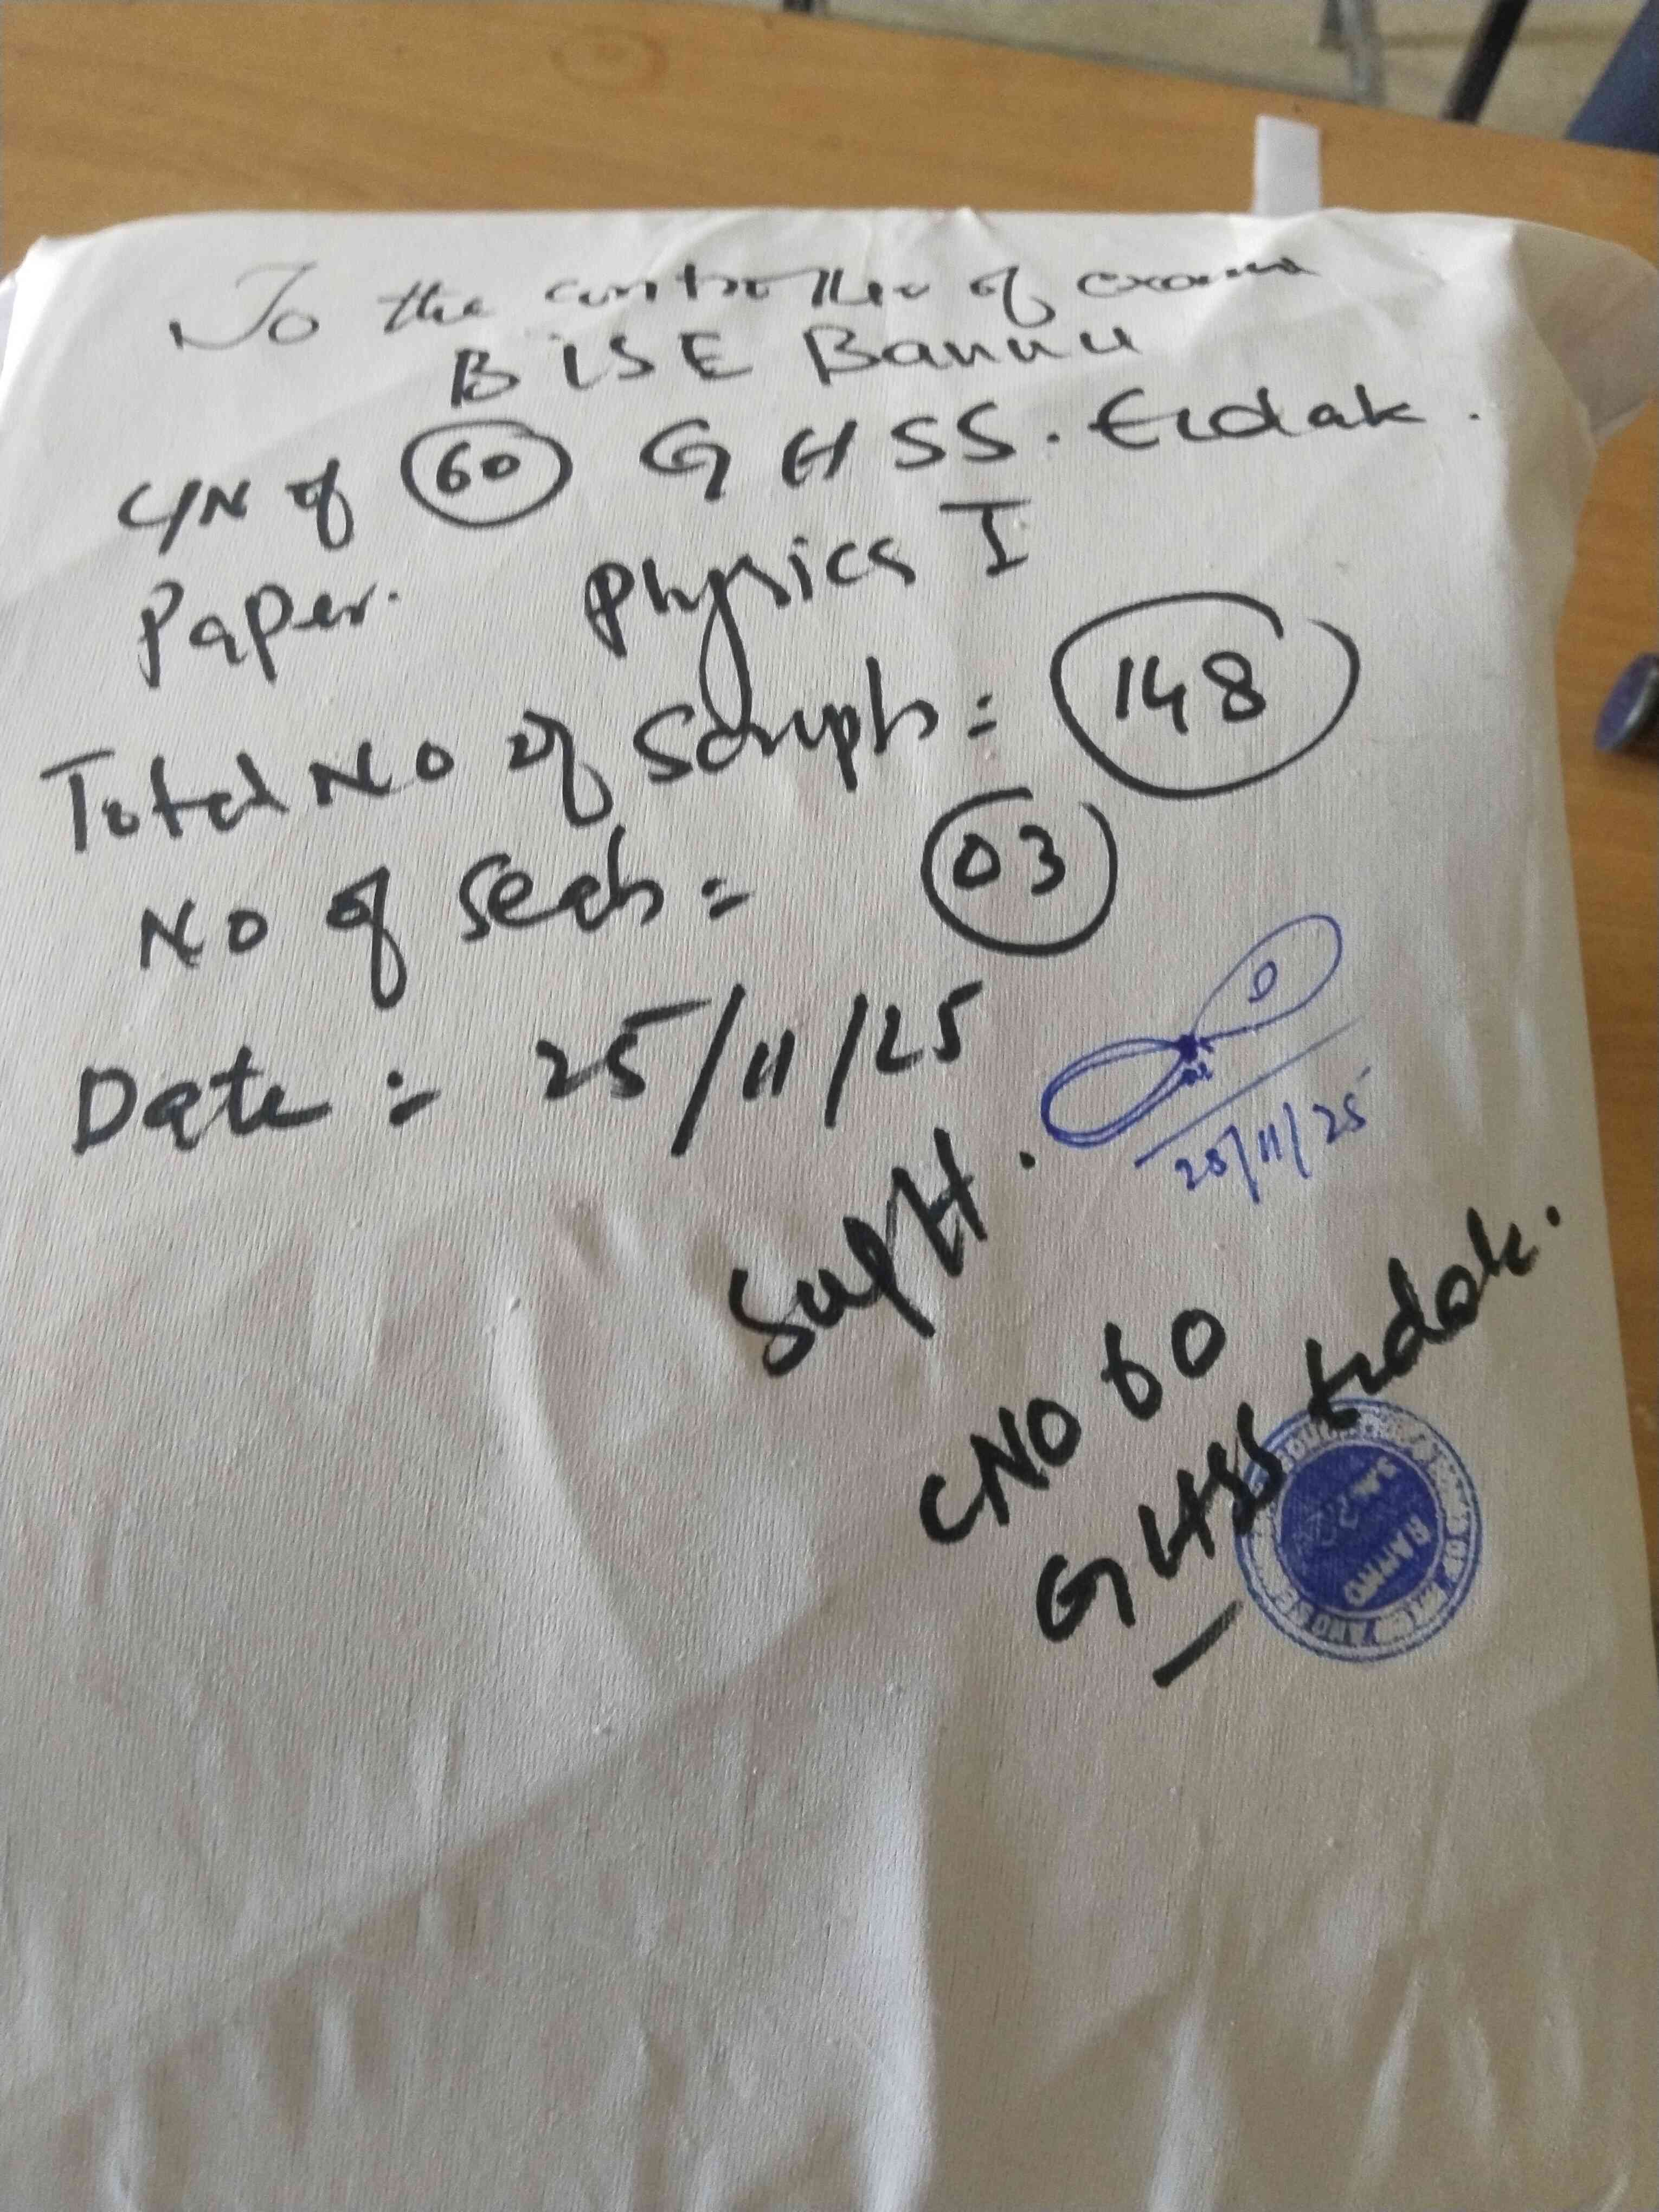 To the controller of exams
BISE Bannu
C/N of 60 GHSS. Eidak.
Paper. Physics I
Total No of Scripts = 148
No of Seals = 03
Date :- 25/11/25
25/11/25
Suptt.
CNO 60
GHSS Eidak.
BANNU